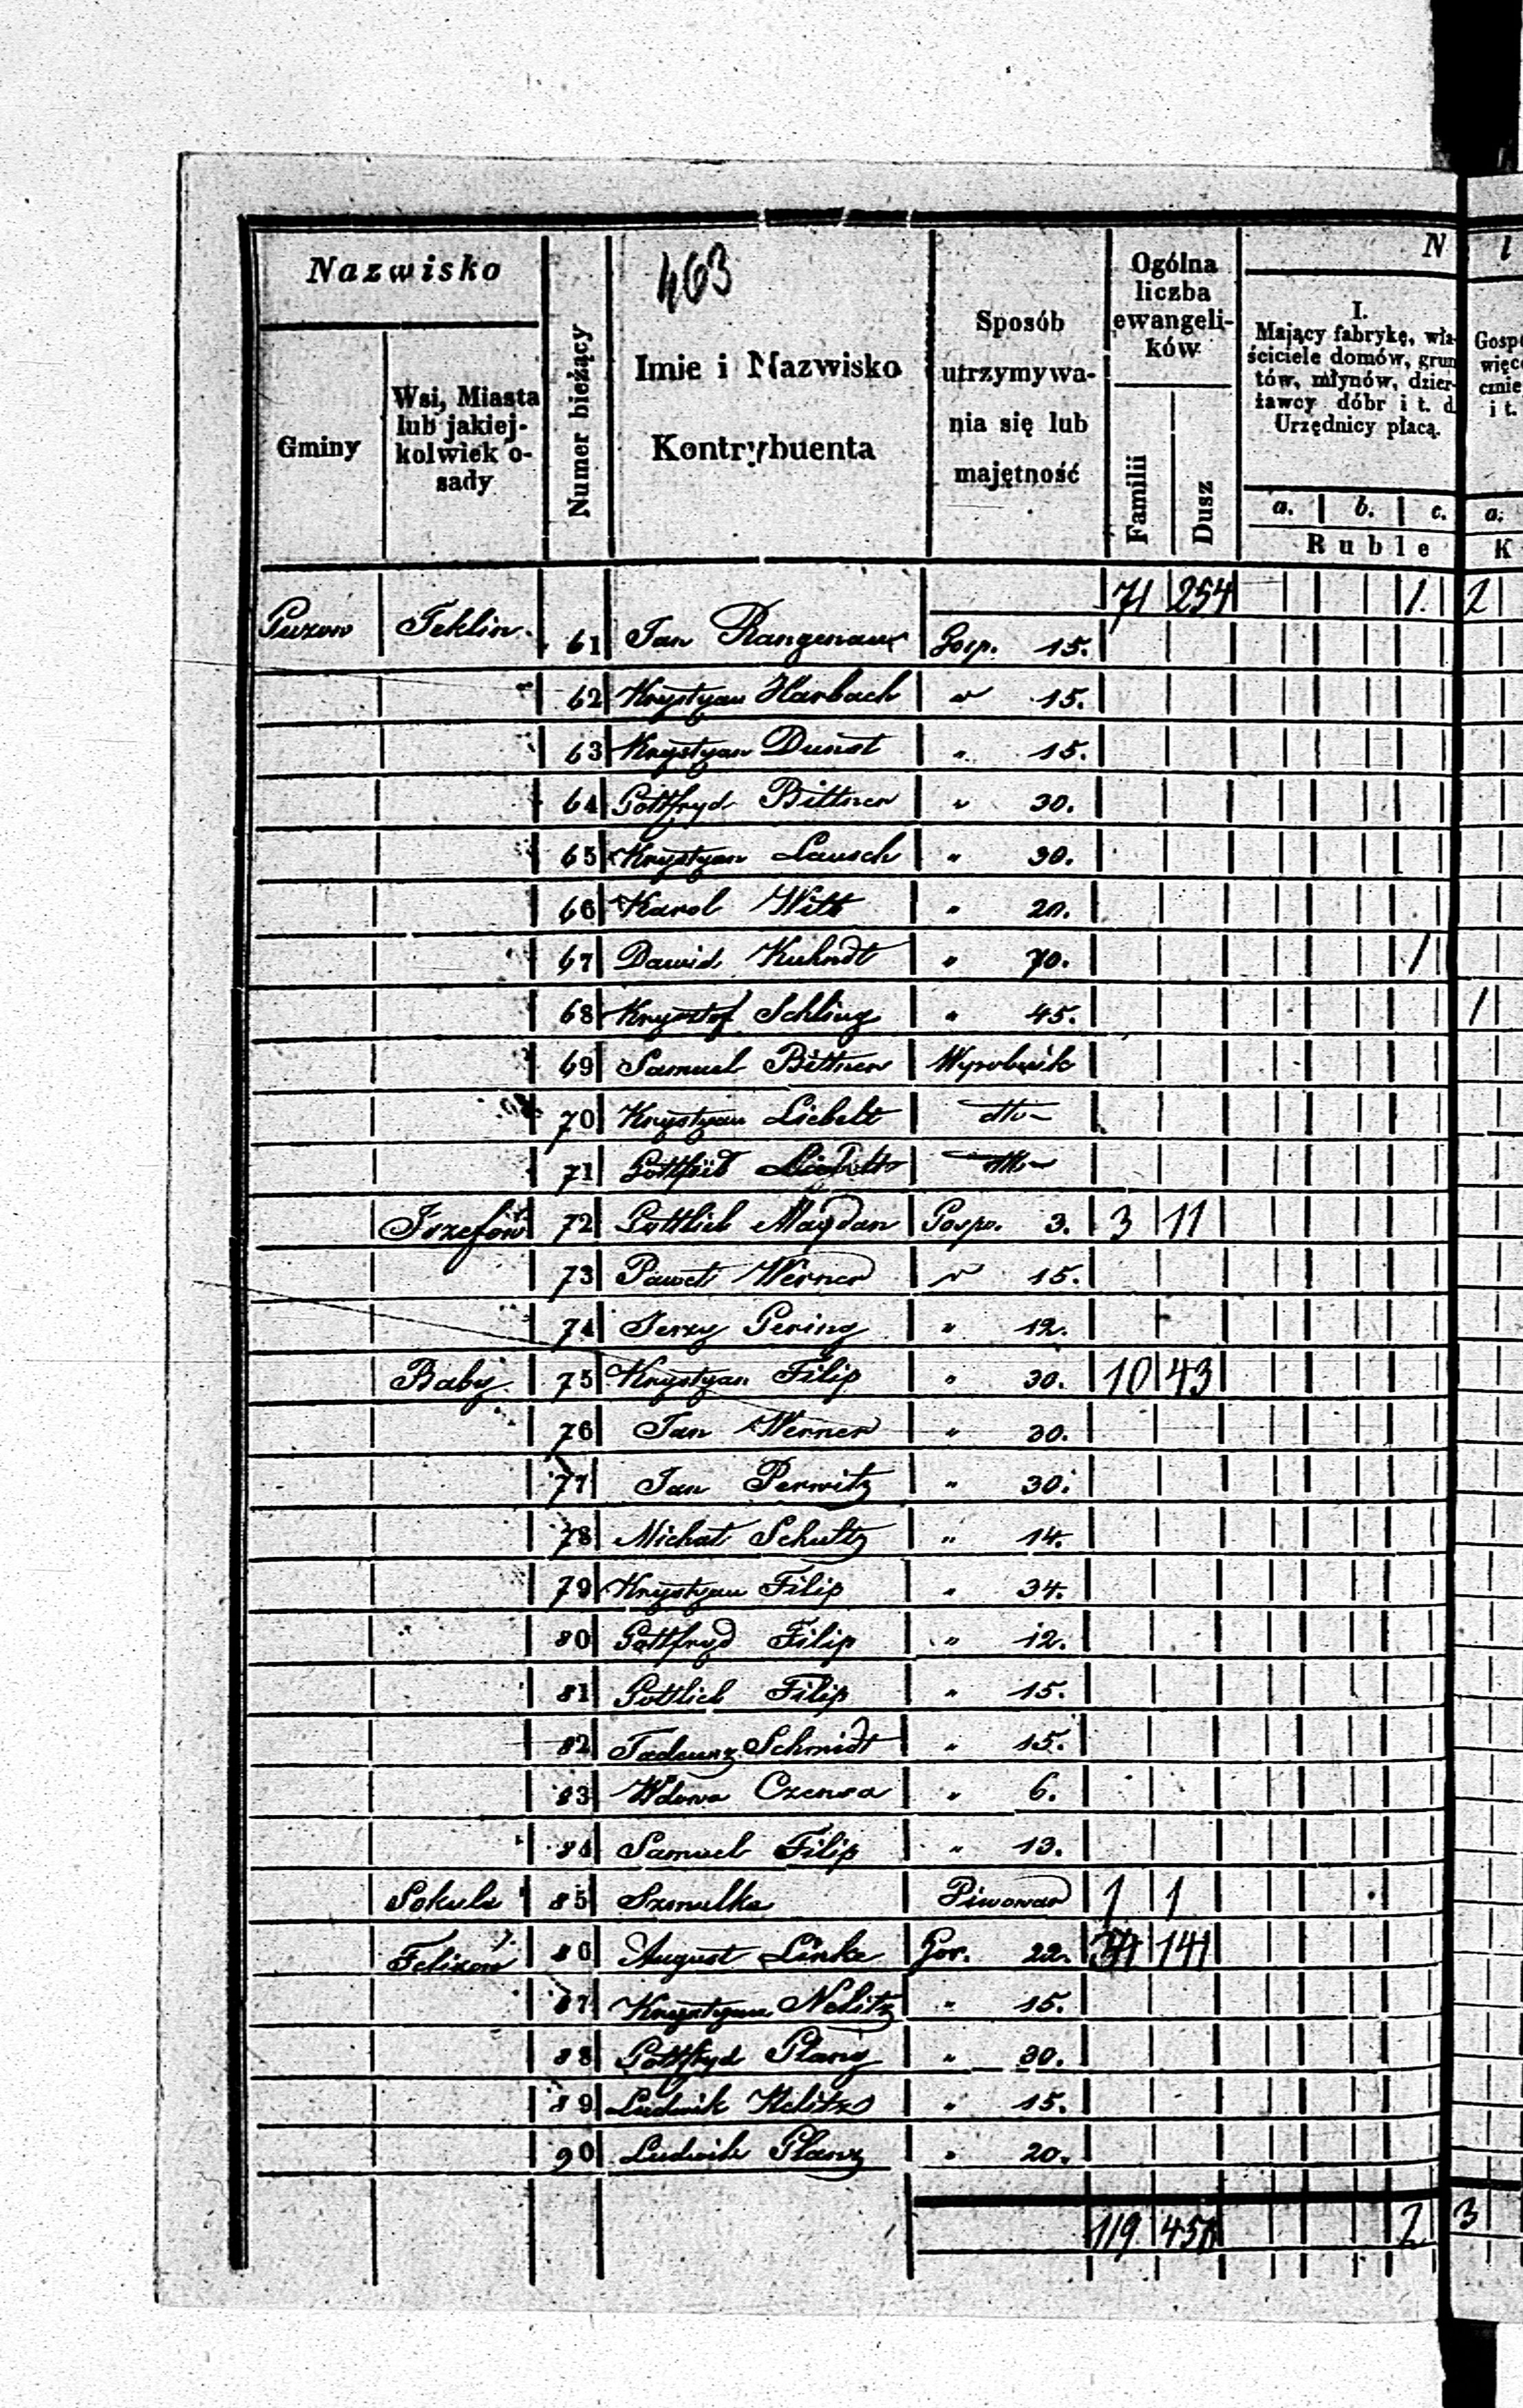 463
Nazwisko
Gminy
Wsi, Miasta lub jakiej-kolwiek o-sady
Numer bieżący
Imie i Nazwisko Kontrybuenta
Sposób utrzymywa-nia się lub majętność
Ogólna liczba ewangeli-ków
Familii
Dusz
N
I.
Mający fabrykę, wła-ściciele domów, grun tów, młynów, dzier-żawcy dóbr i t. d. Urzędnicy płacą.
a. b. c. a.
Ruble K
71 254 1. 2
Guzow Teklin 61 Jan Gosp. 15.
62 Krystyan Harbach " 15.
63 Krystyan Dunst " 15.
64 Gottfryd Bittner " 30.
65 Krystyan Lausch " 30.
66 Karol Witt " 20.
67 Dawid Kuhndt " 70. 1
68 Krysztof Schling " 45. 1
69 Samuel Bittner Wyrobnik
70 Krystyan Liebelt dtto
71 Gottfrid dtto
Jozefow 72 Gottlieb Magdan Gosp. 3. 3 11
73 Paweł Werner " 15.
74 Jerzy Gering " 12.
Baby 75 Krystyan Filip " 30. 10 43
76 Jan Werner " 30.
77 Jan Perwitz " 30.
78 Michał Schultz " 14.
79 Krystyan Filip " 34.
80 Gottfryd Filip " 12.
81 Gottlieb Filip " 15.
82 Tadeusz Schmidt " 15.
83 Wdowa " 6.
84 Samuel Filip " 13.
Sokule 85 Szmulka Piwowar 1 1
Felixow 86 August Linke Gos. 22. 34 141
87 Krystyan " 15.
88 Gottfryd " 30.
89 Ludwik " 15.
90 Ludwik " 20.
119 450 2 3